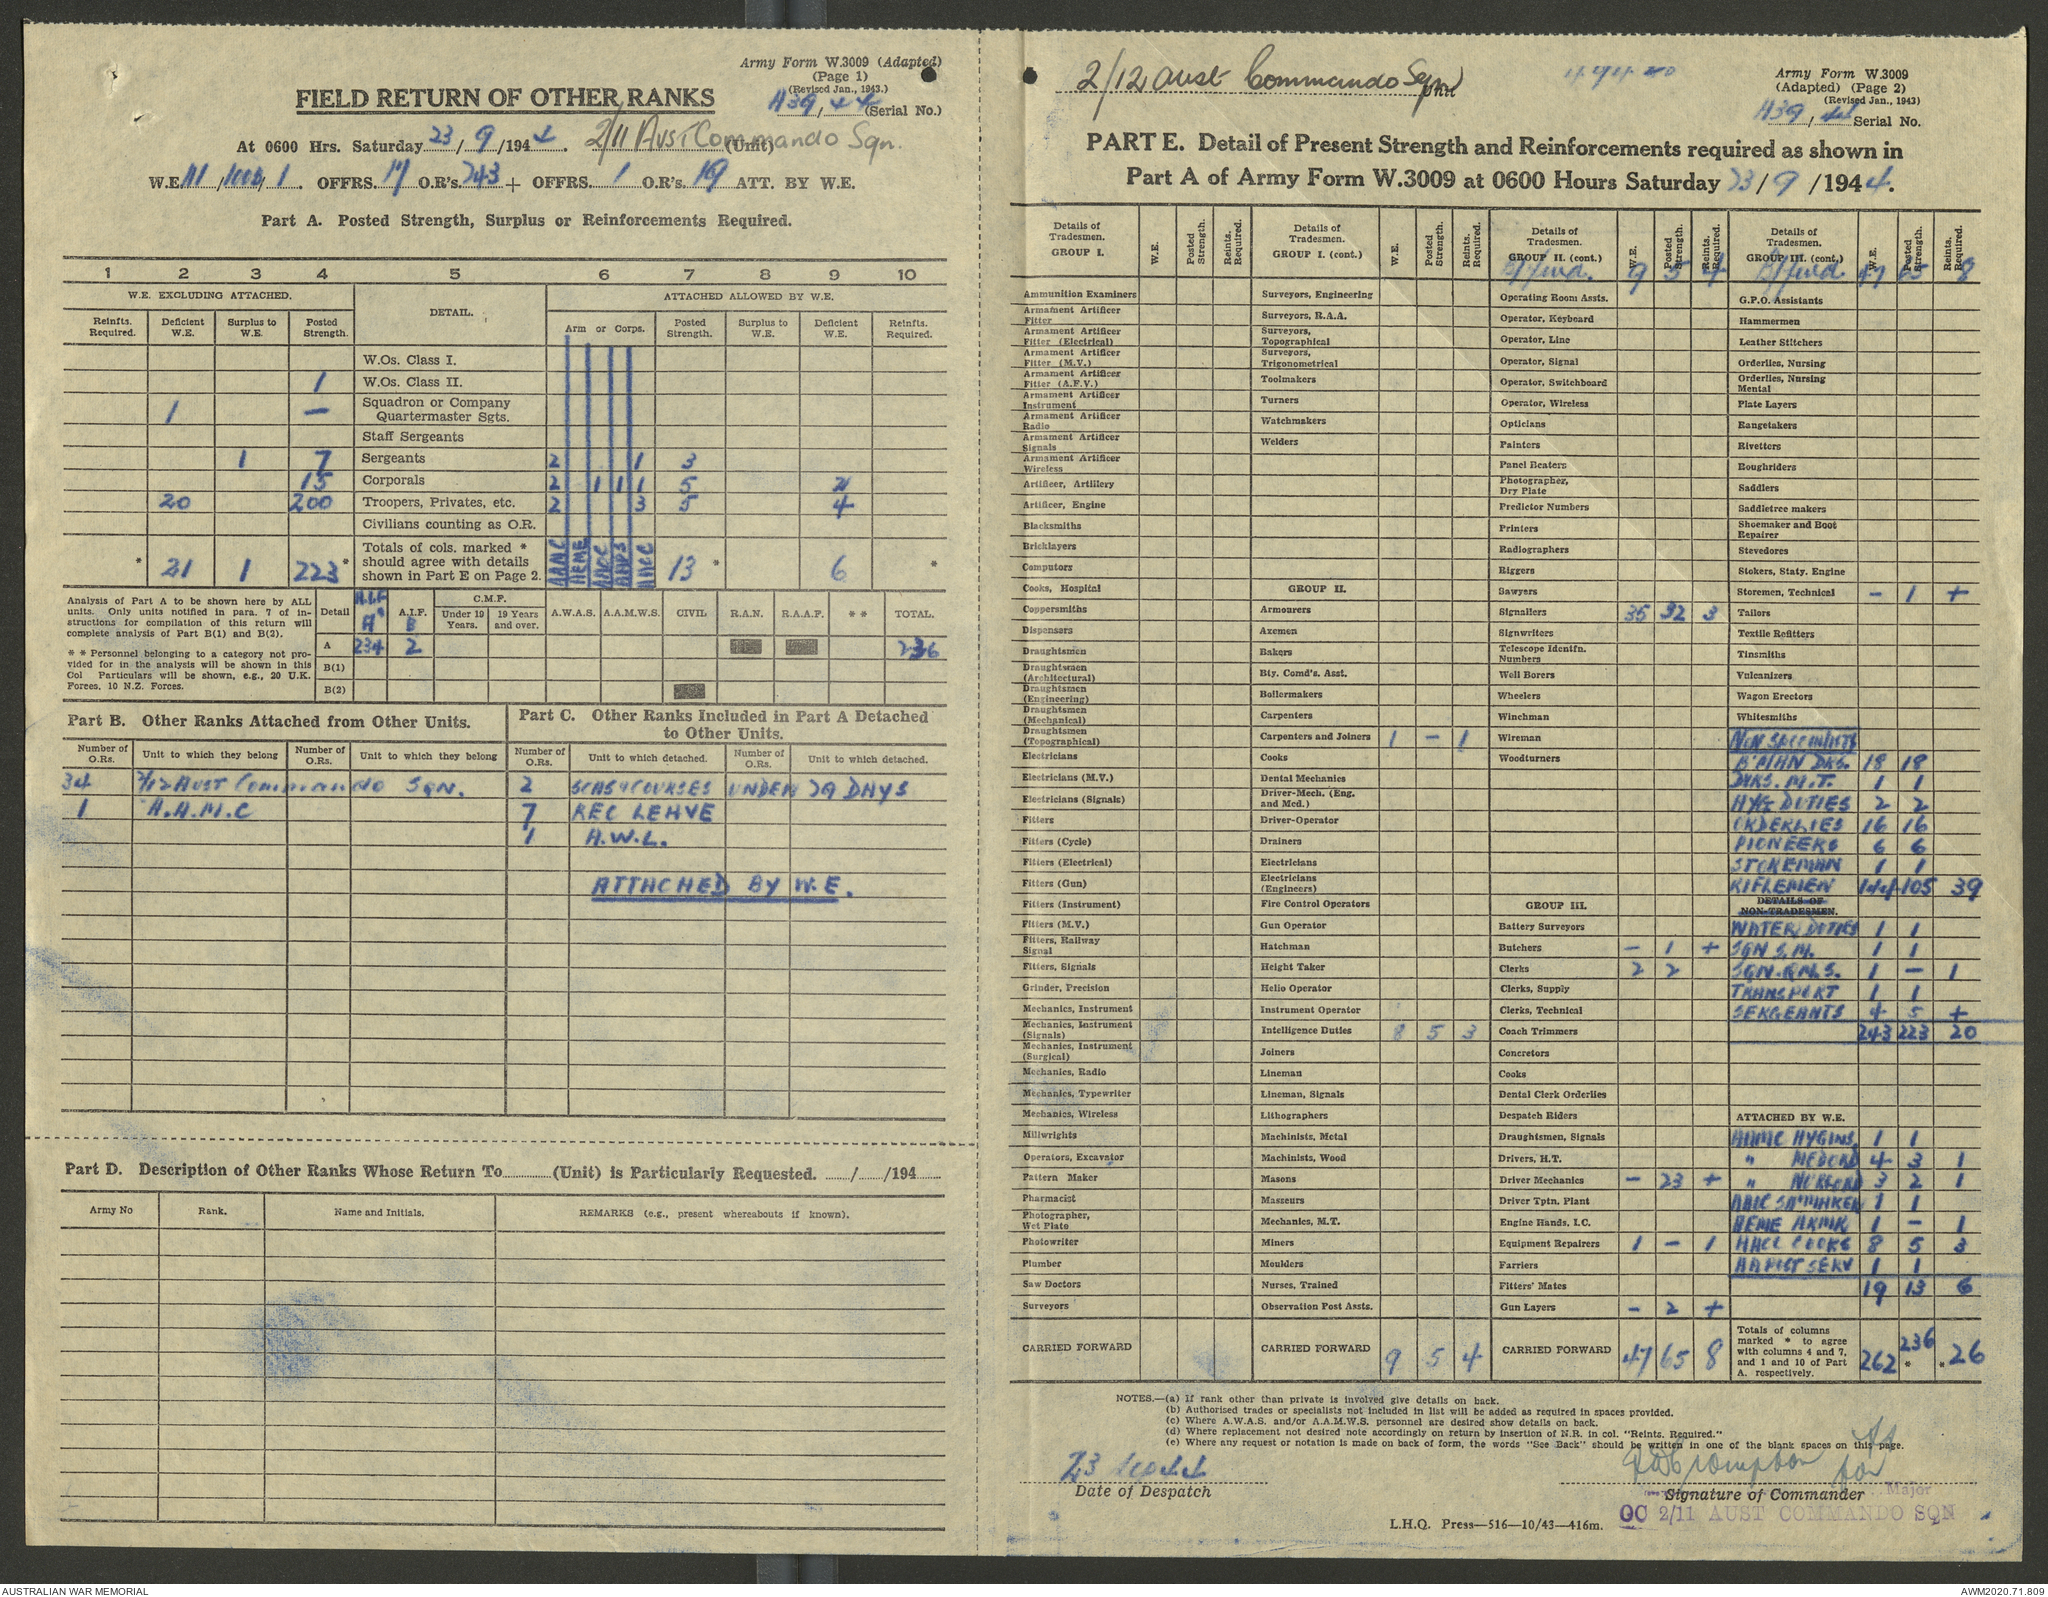 Army Form W.3009 (Adapted)
(Page 1)
(Revised Jan., 1943.)
A39/44 (Serial No.)
FIELD RETURN OF OTHER RANKS
At 0600 Hrs. Saturday 23/9/1944. 2/11 Aust Commando Sqn. (Unit)
W.E. III/1002/1. OFFRS. 17 O.R's. 243 + OFFRS. 1 O.R's. 19 ATT. BY W.E.
Part A. Posted Strength, Surplus or Reinforcements Required.
1 2 3 4 5 6 7 8 9 10
W.E. EXCLUDING ATTACHED. DETAIL. ATTACHED ALLOWED BY W.E.
Reinfts. Required. Deficient W.E. Surplus to W.E. Posted Strength. Arm or Corps. Posted Strength. Surplus to W.E. Deficient W.E. Reinfts. Required.
W.Os. Class I.
1 W.Os. Class II.
1 — Squadron or Company Quartermaster Sgts.
Staff Sergeants
1 7 Sergeants 2 1 3
15 Corporals 2 1 1 1 5 2
20 200 Troopers, Privates, etc. 2 3 5 4
Civilians counting as O.R.
* 21 1 223 * Totals of cols. marked * should agree with details shown in Part E on Page 2. AAMC AEME AAOC AAPS AACC 13 * 6 *
Analysis of Part A to be shown here by ALL units. Only units notified in para. 7 of instructions for compilation of this return will complete analysis of Part B(1) and B(2).
* * Personnel belonging to a category not provided for in the analysis will be shown in this Col Particulars will be shown, e.g., 20 U.K. Forces, 10 N.Z. Forces.
Detail A.I.F. A A.I.F. B C.M.F. Under 19 Years. 19 Years and over. A.W.A.S. A.A.M.W.S. CIVIL R.A.N. R.A.A.F. * * TOTAL.
A 234 2 236
B(1)
B(2)
Part B. Other Ranks Attached from Other Units.
Number of O.Rs. Unit to which they belong Number of O.Rs. Unit to which they belong
34 2/12 Aust Commando Sqn.
1 A.A.M.C
Part C. Other Ranks Included in Part A Detached to Other Units.
Number of O.Rs. Unit to which detached. Number of O.Rs. Unit to which detached.
2 SCHS & COURSES UNDER 29 DAYS
7 REC LEAVE
1 A.W.L.
ATTACHED BY W.E.
Part D. Description of Other Ranks Whose Return To (Unit) is Particularly Requested. / /194
Army No Rank. Name and Initials. REMARKS (e.g., present whereabouts if known).
2/12 Aust Commando Sqn
Unit
Army Form W.3009
(Adapted) (Page 2)
(Revised Jan., 1943)
A39/44 Serial No.
PART E. Detail of Present Strength and Reinforcements required as shown in
Part A of Army Form W.3009 at 0600 Hours Saturday 23/9/1944.
Details of Tradesmen. GROUP I. W.E. Posted Strength. Reints. Required.
Ammunition Examiners
Armament Artificer Fitter
Armament Artificer Fitter (Electrical)
Armament Artificer Fitter (M.V.)
Armament Artificer Fitter (A.F.V.)
Armament Artificer Instrument
Armament Artificer Radio
Armament Artificer Signals
Armament Artificer Wireless
Artificer, Artillery
Artificer, Engine
Blacksmiths
Bricklayers
Computors
Cooks, Hospital
Coppersmiths
Dispensers
Draughtsmen
Draughtsmen (Architectural)
Draughtsmen (Engineering)
Draughtsmen (Mechanical)
Draughtsmen (Topographical)
Electricians
Electricians (M.V.)
Electricians (Signals)
Fitters
Fitters (Cycle)
Fitters (Electrical)
Fitters (Gun)
Fitters (Instrument)
Fitters (M.V.)
Fitters, Railway Signal
Fitters, Signals
Grinder, Precision
Mechanics, Instrument
Mechanics, Instrument (Signals)
Mechanics, Instrument (Surgical)
Mechanics, Radio
Mechanics, Typewriter
Mechanics, Wireless
Millwrights
Operators, Excavator
Pattern Maker
Pharmacist
Photographer, Wet Plate
Photowriter
Plumber
Saw Doctors
Surveyors
CARRIED FORWARD
Details of Tradesmen. GROUP I. (cont.) W.E. Posted Strength. Reints. Required.
Surveyors, Engineering
Surveyors, R.A.A.
Surveyors, Topographical
Surveyors, Trigonometrical
Toolmakers
Turners
Watchmakers
Welders
GROUP II.
Armourers
Axemen
Bakers
Bty. Comd's. Asst.
Boilermakers
Carpenters
Carpenters and Joiners 1 — 1
Cooks
Dental Mechanics
Driver-Mech. (Eng. and Mcd.)
Driver-Operator
Drainers
Electricians
Electricians (Engineers)
Fire Control Operators
Gun Operator
Hatchman
Height Taker
Helio Operator
Instrument Operator
Intelligence Duties 8 5 3
Joiners
Lineman
Lineman, Signals
Lithographers
Machinists, Metal
Machinists, Wood
Masons
Masseurs
Mechanics, M.T.
Miners
Moulders
Nurses, Trained
Observation Post Assts.
CARRIED FORWARD 9 5 4
Details of Tradesmen. GROUP II. (cont.) W.E. Posted Strength. Reints. Required.
B/fwd. 9 5 4
Operating Room Assts.
Operator, Keyboard
Operator, Line
Operator, Signal
Operator, Switchboard
Operator, Wireless
Opticians
Painters
Panel Beaters
Photographer, Dry Plate
Predictor Numbers
Printers
Radiographers
Riggers
Sawyers
Signallers 35 32 3
Signwriters
Telescope Identfn. Numbers
Well Borers
Wheelers
Winchman
Wireman
Woodturners
GROUP III.
Battery Surveyors
Butchers — 1 +
Clerks 2 2
Clerks, Supply
Clerks, Technical
Coach Trimmers
Concretors
Cooks
Dental Clerk Orderlies
Despatch Riders
Draughtsmen, Signals
Drivers, H.T.
Driver Mechanics — 23 +
Driver Tptn. Plant
Engine Hands, I.C.
Equipment Repairers 1 — 1
Farriers
Fitters' Mates
Gun Layers — 2 +
CARRIED FORWARD 47 65 8
Details of Tradesmen. GROUP III. (cont.) W.E. Posted Strength. Reints. Required.
B/fwd. 47 65 8
G.P.O. Assistants
Hammermen
Leather Stitchers
Orderlies, Nursing
Orderlies, Nursing Mental
Plate Layers
Rangetakers
Rivetters
Roughriders
Saddlers
Saddletree makers
Shoemaker and Boot Repairer
Stevedores
Stokers, Staty. Engine
Storemen, Technical — 1 +
Tailors
Textile Refitters
Tinsmiths
Vulcanizers
Wagon Erectors
Whitesmiths
NON SPECIALISTS
B'MAN DRS. 18 18
DVRS. M.T. 1 1
HYG DUTIES 2 2
ORDERLIES 16 16
PIONEERS 6 6
STOREMAN 1 1
RIFLEMEN 144 105 39
DETAILS OF NON-TRADESMEN.
WATER DUTIES 1 1
SQN S.M. 1 1
SQN.QM.S. 1 — 1
TRANSPORT 1 1
SERGEANTS 4 5 +
243 223 20
ATTACHED BY W.E.
AAMC HYGINS 1 1
" MEDORD 4 3 1
" NURSORD 3 2 1
1 1
AEME ARMR 1 — 1
AACC COOKS 8 5 3
AAPOST SERV 1 1
19 13 6
Totals of columns marked * to agree with columns 4 and 7, and 1 and 10 of Part A. respectively. 262 236 * * 26
NOTES.—(a) If rank other than private is involved give details on back.
(b) Authorised trades or specialists not included in list will be added as required in spaces provided.
(c) Where A.W.A.S. and/or A.A.M.W.S. personnel are desired show details on back.
(d) Where replacement not desired note accordingly on return by insertion of N.R. in col. "Reints. Required."
(e) Where any request or notation is made on back of form, the words "See Back" should be written in one of the blank spaces on this page.
23 Sep 44
Date of Despatch
for
Major
Signature of Commander
OC 2/11 AUST COMMANDO SQN
L.H.Q. Press—516—10/43—416m.
AUSTRALIAN WAR MEMORIAL
AWM2020.71.809